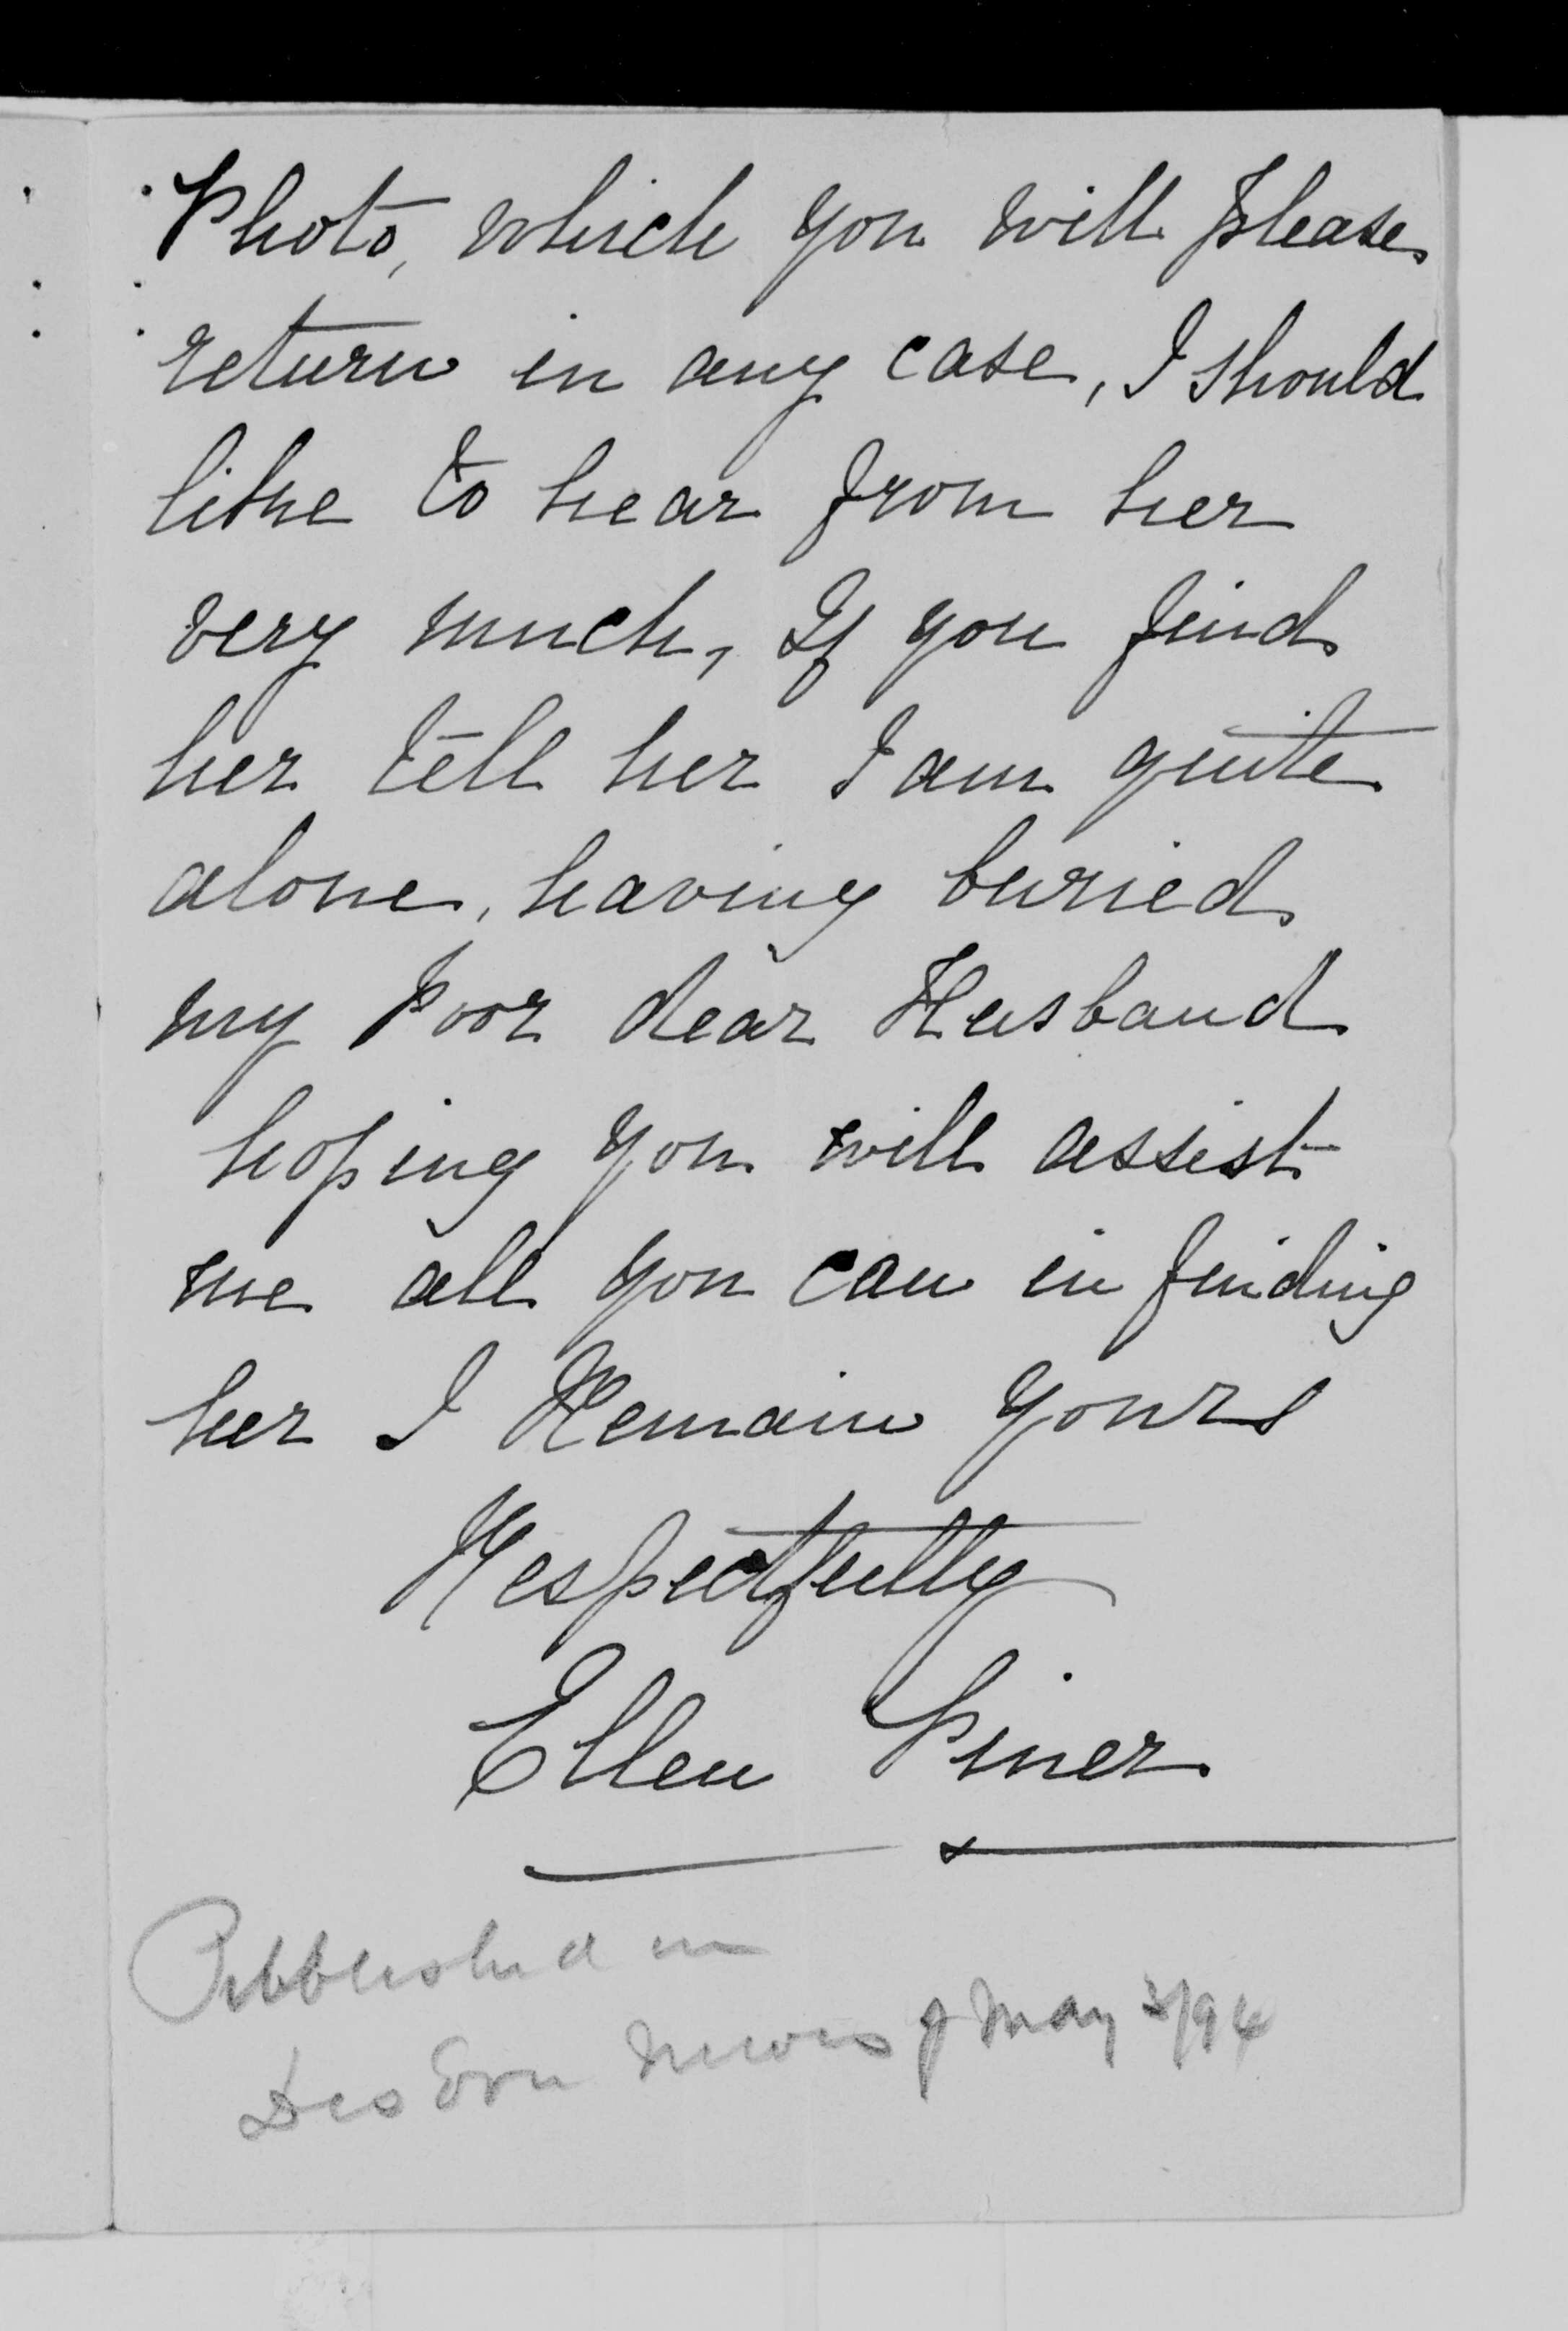 Photo, which you will please
return in any case, I should
like to hear from her
very much, If you find
her tell her I am quite
alone, having buried
my Poor dear Husband
hoping you will assist
me all you can in finding
her I Remain Yours
Respectfully
Ellen Piner
Published in
Des Evn News of May 3/94